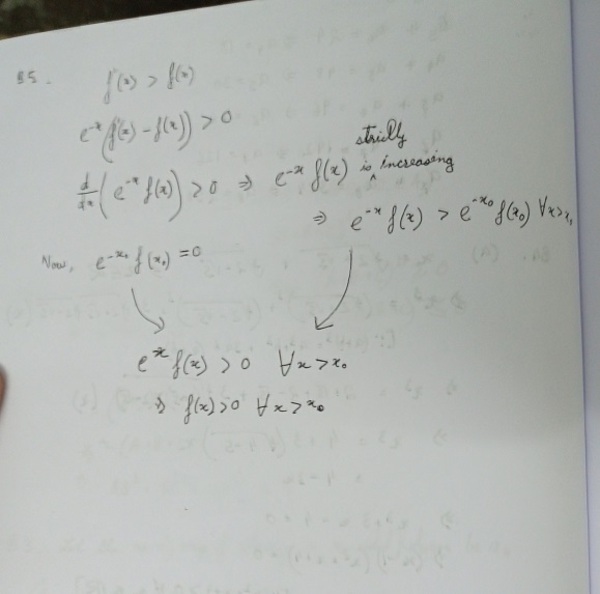 85. f'(x) > f(x)
e^{-x}(f'(x) - f(x)) > 0
d/dx (e^{-x} f(x)) > 0 ⇒ e^{-x} f(x) is strictly increasing
⇒ e^{-x} f(x) > e^{-x_0} f(x_0) ∀x>x_0
Now, e^{-x_0} f(x_0) = 0
e^{x} f(x) > 0 ∀x > x_0
⇒ f(x) > 0 ∀x > x_0